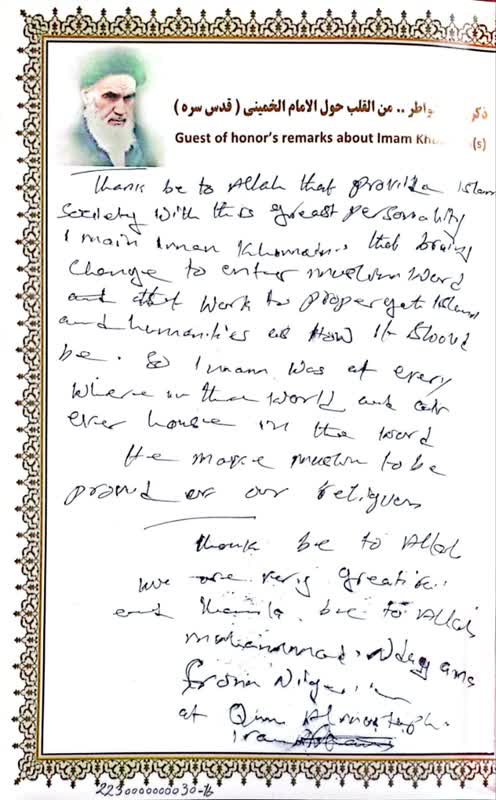 ذكر واطر .. من القلب حول الامام الخميني ( قدس سره )
Guest of honor's remarks about Imam Kh (s)
Thank be to Allah that provide Islam
society with this great personality
I main Iman Khomain that bring
change to enter muslim word
and that work to propergat Islam
and humanities as How it Shoud
be. So Imam was at every
where in the world and
ever house in the word
He make muslim to be
proud or our religuon
Thank be to Allah
we are very greatik
and be to Allah
mohammad Ndayana
from Nigeria
at Qum Almostaph
Iran
2230000000030-16